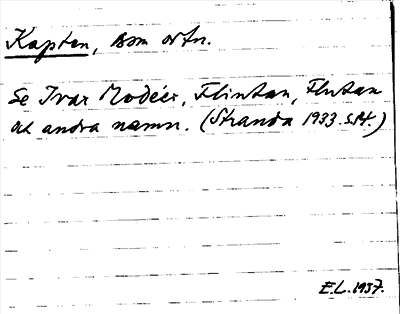 Kapten, som ortn.
Se Ivar Modéer, Flintan, Flutan
och andra namn. (Stranda 1933. s.14.)
E.L. 1937.